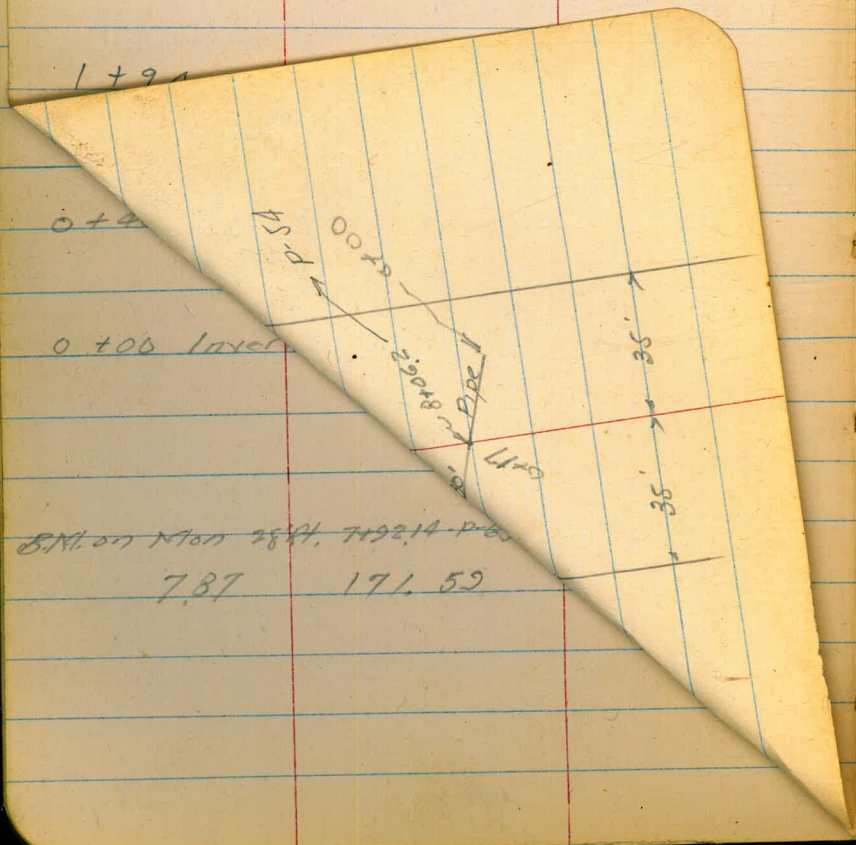 1 + 9
0 + 4
0 + 00 Inver
B.M. on Mon 28' Rt. 7+92.14 - P-6
7.87 171.59
P-54
8+06.2
Pipe
35'
35'